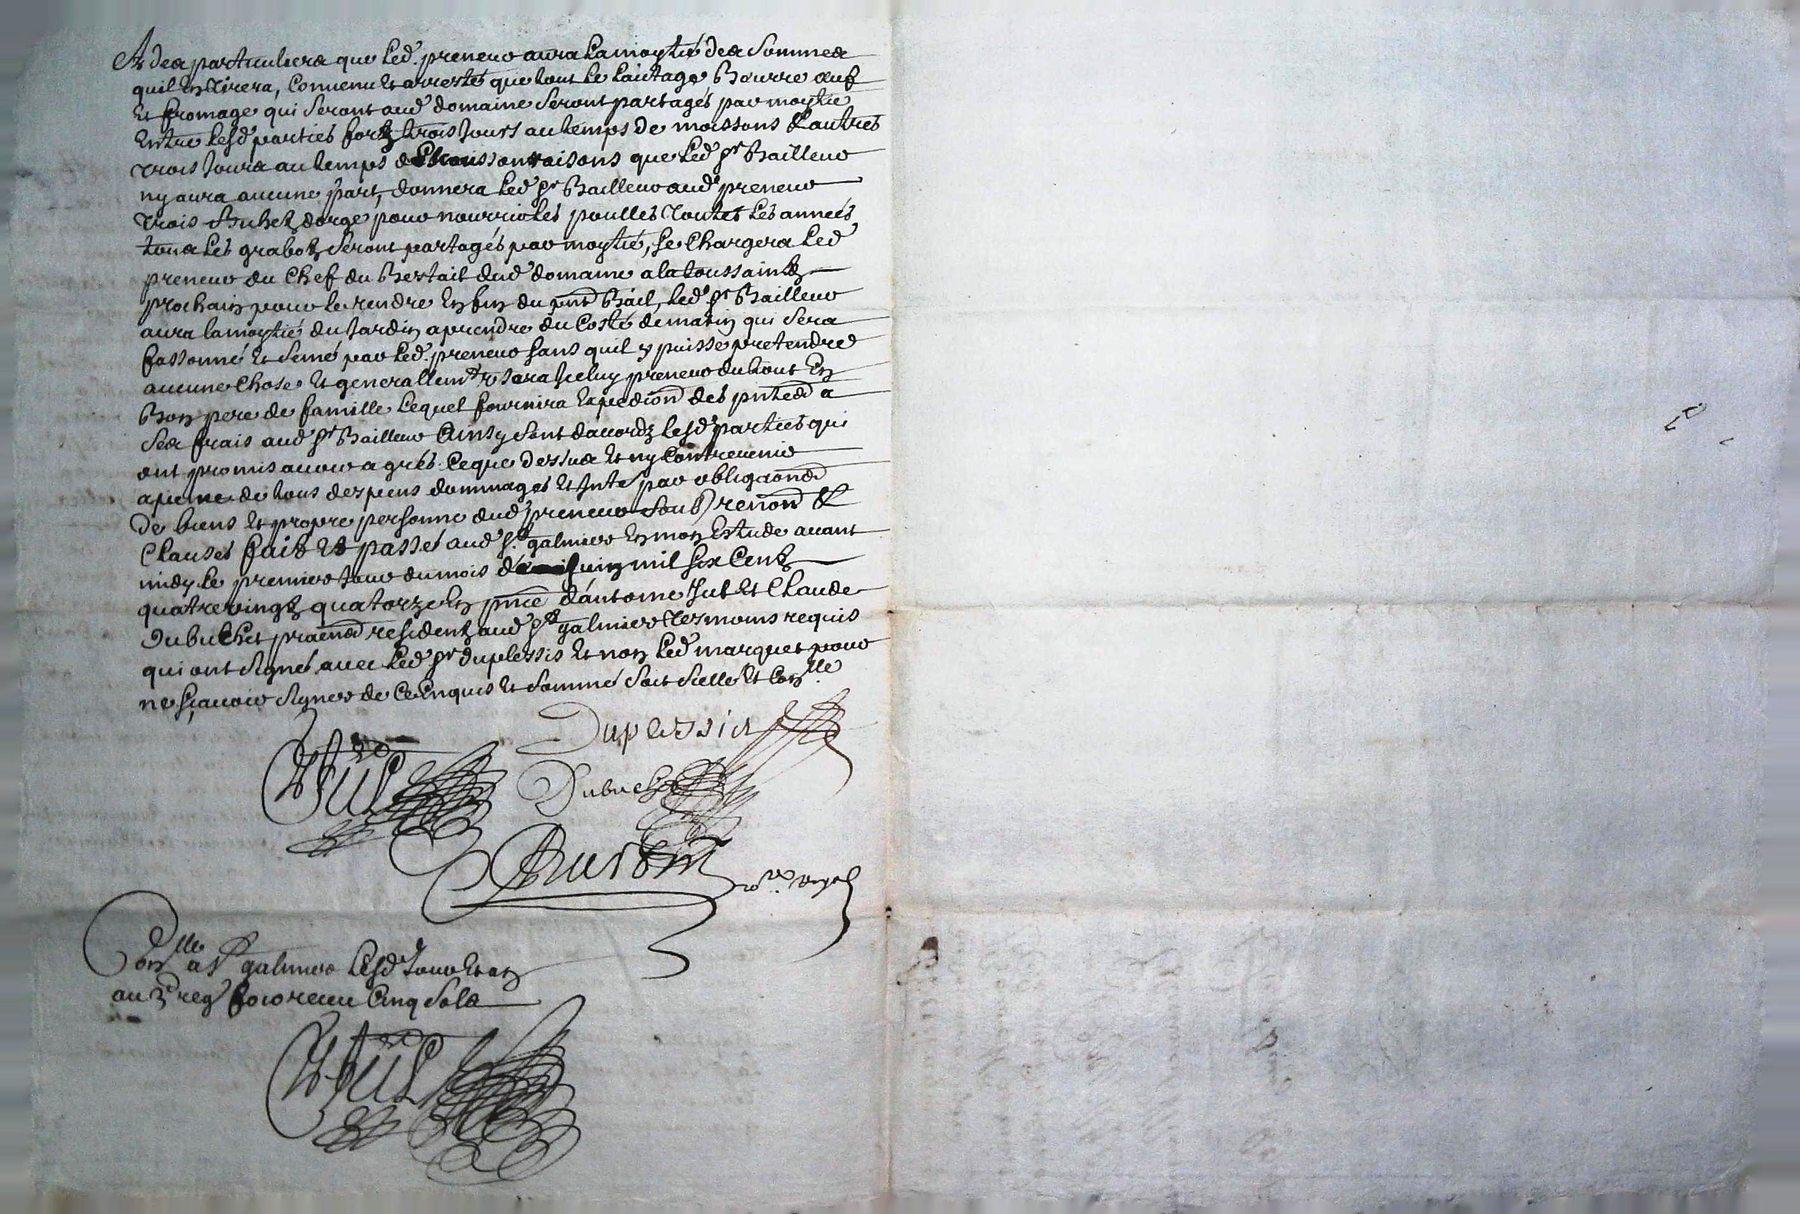 A des particuliers que led. preneur aura la moytié des sommes
quil en tirera, Convenu et arresté que tout le laictage Beurre oeufz
et fromage qui seront aud. domaine seront partagés par moytié
Entre lesd. parties forz trois jours au temps de moissons & autres
trois jours au temps de que led. sr Bailleur
ny aura aucune part, donnera led. sr Bailleur aud. preneur
trois Bichetz dorge pour nourrir les poulles toutes les années
tous les grabotz seront partagés par moytié, se chargera led.
preneur du chef du Bestail dud. domaine a la toussainctz
prochain pour le rendre en fin du pnt Bail, led. sr Bailleur
aura la moytié du Jardin a prendre du Costé de matin qui sera
fassonné et semé par led. preneur sans quil y puisse pretendre
aucune chose et generallemt Iceluy preneur du tout En
Bon pere de famille lequel fournira Expedion des pntes a
ses frais aud. sr Bailleur Ainsy sont dacordz lesd. parties qui
ont promis avoir a grés ce que dessus et ny contrevenir
a peine de tous despens dommages et Intes par obligaons
de biens et propre personne dud. preneur soubz renons &
Clauses fait et passé aud. St galmier En mon Estude avant
midy le premier jour du mois de juin mil six Centz
quatrevingtz quatorze En pnce dantoine Jul et Claude
Dubuchet pratns residentz aud. St galmier tesmoins requis
qui ont signés avec led. sr duplessis et non led. marquet pour
ne sçavoir signer de ce Enquis et sommé soit scellé et Conlle
Duplessis
Jul
Dubuchet
nore royal
Conlle a St galmier lesd. jour et an
au 3e reg. fo recu Cinq sols
Jul